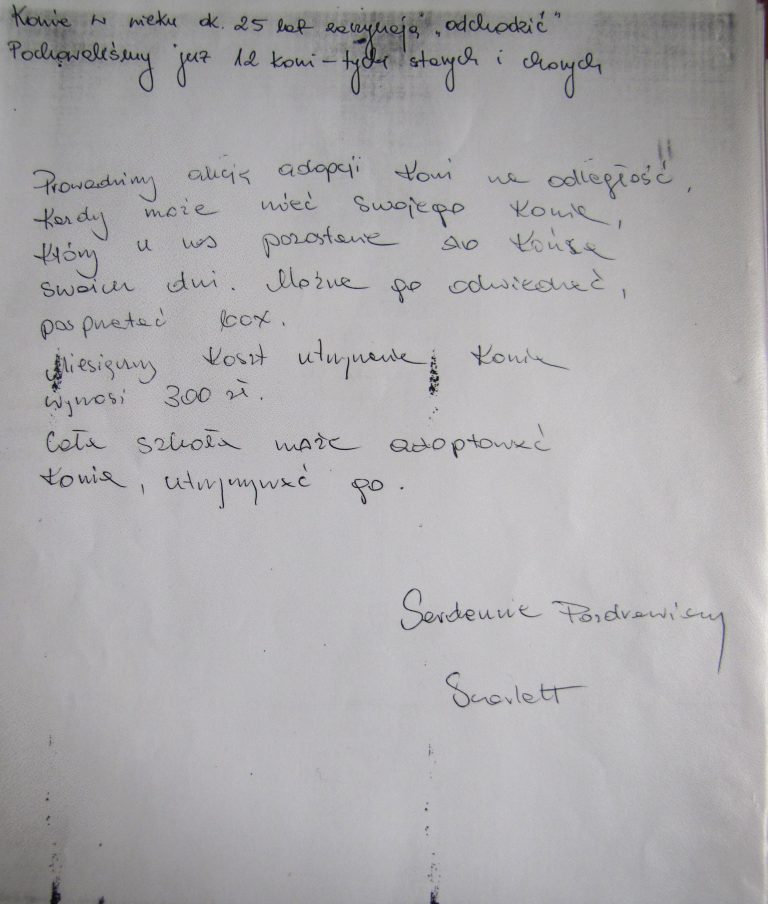 Konie w wieku ok. 25 lat zaczynają „odchodzić”
Pochowaliśmy już 12 koni – tych starych i chorych
Prowadzimy akcję adopcji koni na odległość,
Każdy może mieć swojego konia,
który u nas pozostanie do końca
swoich dni. Można go odwiedzać,
posprzątać boks.
Miesięczny koszt utrzymania konia
wynosi 300 zł.
Cała szkoła może adoptować
konia, utrzymywać go.
Serdecznie Pozdrawiamy
Scarlett